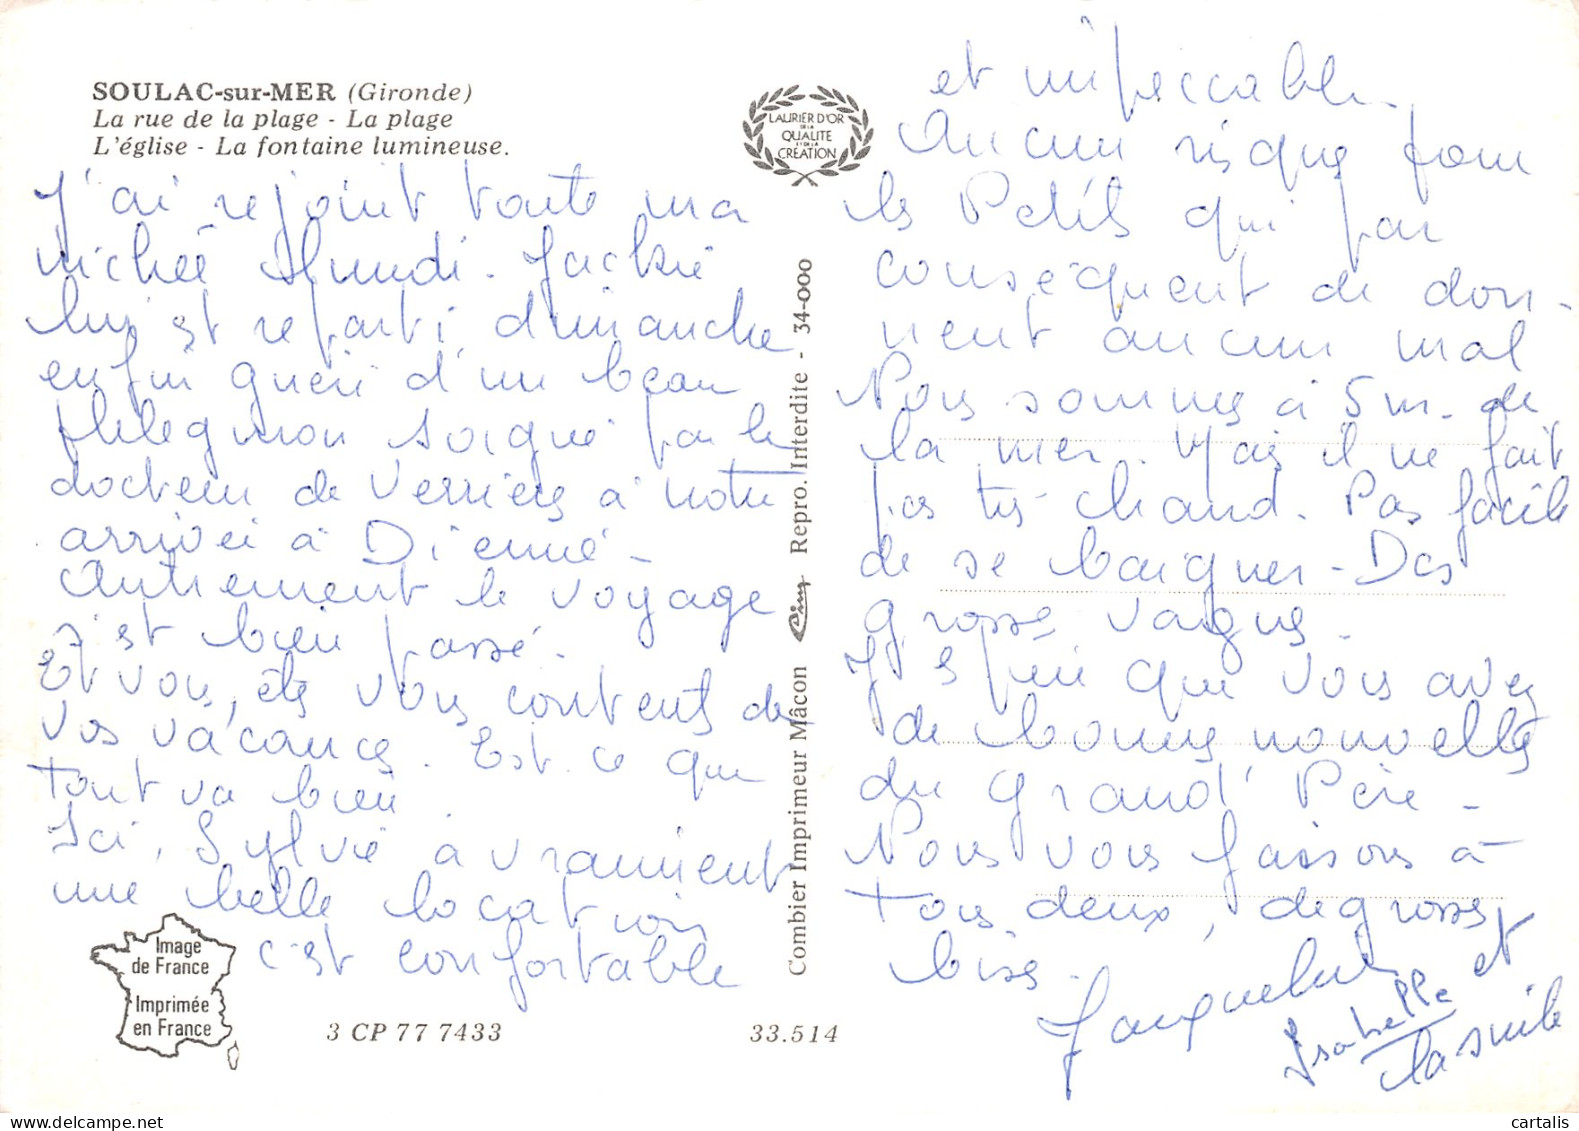 SOULAC-sur-MER (Gironde)
La rue de la plage - La plage
L'église - La fontaine lumineuse.
LAURIER D'OR
DE LA
QUALITE
ET DE LA
CREATION
J'ai rejoint toute ma
nichée lundi. Jackie
lui est reparti dimanche
enfin guéri d'un beau
phlegmon soigné par le
docteur de Verrières à notre
arrivée à Dienné -
Autrement le voyage
s'est bien passé.
Et vous, êtes vous contents de
vos vacances. Est ce que
tout va bien
Ici, Sylvie à vraiment
une belle location
c'est confortable
Image
de France
Imprimée
en France
3 CP 77 7433
33.514
Combier Imprimeur Mâcon Cim Repro. Interdite - 34-000
et impeccable
Aucun risque pour
les Petits qui par
conséquent ne don-
nent aucun mal
Nous sommes à 5m. de
la mer. Mais il ne fait
pas très chaud. Pas facile
de se baigner - Des
grosses vagues.
J'espère que vous avez
de bonnes nouvelles
du Grand' Père -
Nous vous faisons à
tous deux, de grosses
bises.
Jacqueline
Isabelle et
la suite